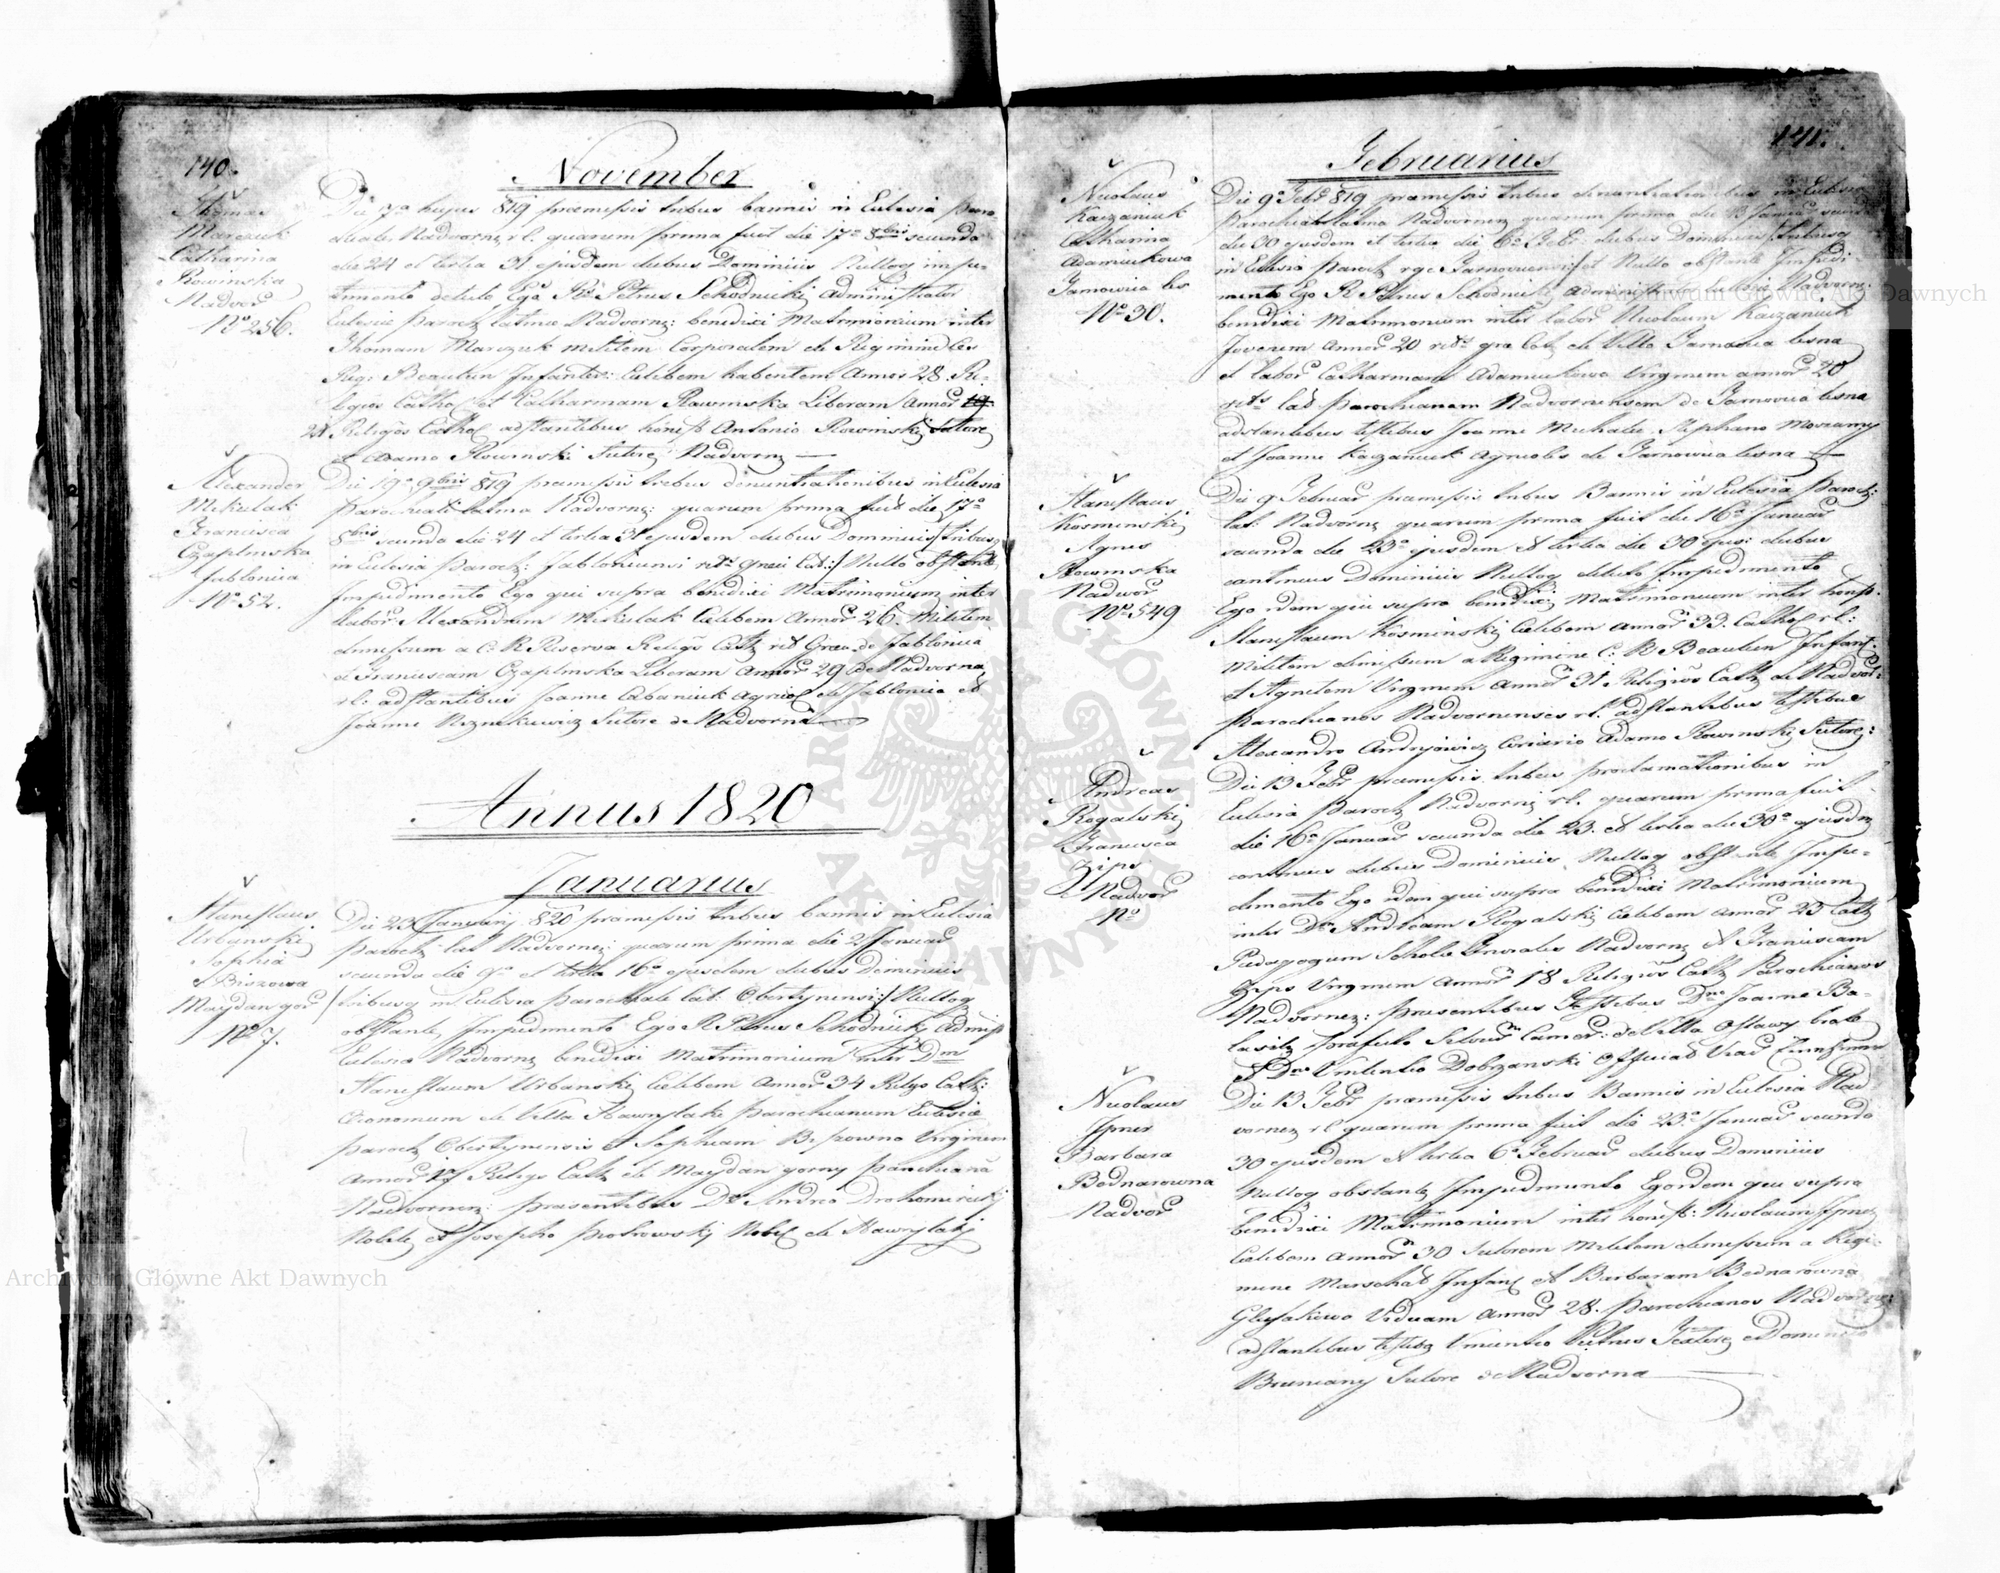 140.
November
Thomas
Marczuk
Catharina
Rowinska
Nadvor
Nº 256.
Die 7ª hujus 819 præmissis tribus bannis in Eclesia Paro-
chiali Nadvorn. r.l. quarum prima fuit die 17ª 8bris secunda
die 24 et tertia 31 ejusdem diebus Dominicis Nulloq impe-
dimento detecto Ego Rs Petrus Schodnicki Administrator
Eclesiæ Paroch latinæ Nadvorn: benedixi Matrimonium inter
Thomam Marczuk militem Corporalem de Regimine Ces
Reg: Beaulieu Infanter: Celibem habentem Annos 28. Re-
ligios Cathol et Catharinam Rowinska Liberam Annor
21 Religios Cathol adstantibus honest Antonio Rowinski Sutore
et Adamo Rowinski Sutore Nadvorn
Alexander
Mikulak
Francisca
Czaplinska
Jablonica
Nº 52.
Die 19ª 9bris 819 præmissis trebus denuntiationibus in Eclesia
Parochiali latina Nadvorn: quarum prima fuit die 17ª
8bris secunda die 24 et tertia 31 ejusdem diebus Dominicis
in Eclesia Paroch: Jabloniensi rits græci Cat: Nullo obstante
Impedimento Ego qui supra benedixi Matrimonium inter
labor Alexandrum Mikulak Celibem Annor 26. Militem
dimissum a C. R. Reserva Religs Cath rit Græc. de Jablonica
et Franciscam Czaplinska Liberam Annor 29 de Nadvorna
r.l: adstantibus Joanne Cabaniuk Agricol de Jablonica et
Joanne Sutore de Nadvorna
Annus 1820
Januarius
Stanislaus
Urbanski
Sophia
Biszowa
Maydan gor
Nº 7.
Die 23 Januarij 820 præmissis tribus bannis in Eclesia
Paroch: lat Nadvorn: quarum prima die 2 Januar
secunda die 9ª et tertia 16ª ejusdem diebus Dominicis
tribusq in Eclesia Parochiali lat: Obertynensi Nulloq
obstante Impedimento Ego R Petrus Schodnicki Admis
Eclesia Nadvorn benedixi Matrimonium inter Dm
Stanislaum Urbanski Celibem Annor 34 Religs Cath:
Oconomum de Villa Hawrylaki Parochianum Eclesiæ
Paroch Obertynensis et Sophiam Virginem
Annor Religs Cath de Maydan gorny Parochiana
Nadvornen: præsentibus Do Andrea Drohomirecki
Nobile et Josepho Piotrowski Nobil de Hawrylaki
141.
Februarius
Nicolaus
Kaczaniuk
Catharina
Adamiukowa
Tarnowica les
Nº 30.
Die 9ª Febr 819 præmissis tribus denuntiationibus in Eclesia
Parochiali latina Nadvornen quarum prima die Januar secun
die 30 ejusdem et tertia die 6ª Febr. diebus Dominicis tribusq
in Eclesia Paroch rgc Tarnoviensi et Nullo obstante Impedi
mento Ego R Petrus Schodnicki Administrator Eclesiæ Nadvorn:
benedixi Matrimonium inter labor Nicolaum Kaczaniuk
Juvenem Annor 20 rits græ Cat de Villa Tarnowica lesna
et labor Catharinam Adamiukowa Virginem annor 20
rits lat Parochianam Nadvornensem de Tarnowica lesna
adstantibus testibus Joanne Michaluc Stephano
et Joanne Kaczaniuk Agricolis de Tarnowica lesna
Stanislaus
Kosminski
Agnes
Rowinska
Nadwor
Nº 549
Die 9 Februar præmissis tribus Bannis in Eclesia Paroch:
lat: Nadvorn quarum prima fuit die 16ª Januar
secunda die 23ª ejusdem et tertia die 30 ejus: diebus
continuis Dominicis Nulloq detecto Impedimento
Ego idem qui supra benedixi Matrimonium inter honest.
Stanislaum Kosminski Celibem annor 33. Cathol r.l:
Militem dimissum a Regimine C: R Beaulieu Infant:
et Agnetem Virginem Annor 31 Religios Cath de Nadvor:
Parochianos Nadvornenses r.l. adstantibus testibus
Alexandro Andryowicz Adamo Rowinski Sutore:
Andreas
Rogalski
Francisca
Zips
Nadvor
Nº
Die 13 Febr præmissis tribus proclamationibus in
Eclesia Paroch Nadvorn r.l. quarum prima fuit
die 16ª Januar secunda die 23. et tertia die 30ª ejusdem
continuis diebus Dominicis Nulloq obstante Impe-
dimento Ego idem qui supra benedixi Matrimonium
inter Dm Andream Rogalski Celibem Annor 25 Cath
Pedagogum Scholæ Nadvorn et Franciscam
Zips Virginem Annor 18 Religios Cath Parochianos
Nadvornen: præsentibus Testibus Dno Joanne Ba-
Camer: de Villa
et Dno Vincentio Dobrzanski
Nicolaus
Barbara
Bednarowna
Nadvor
Die 13 Febr præmissis tribus Bannis in Eclesia Nad
vornen r.l quarum prima fuit die 23ª Januar secunda
30 ejusdem et tertia 6ª Februar diebus Dominicis
Nulloq obstante Impedimento Ego idem qui supra
benedixi Matrimonium inter honest: Nicolaum
Celibem Annor 30 Sutorem Militem dimissum a Regi-
mine Marschal Infant et Barbaram Bednarowna
Viduam Annor 28. Parochianos Nadvorn:
adstantibus testibq Vincentio et Dominico
Sutore de Nadvorna
Archiwum Główne Akt Dawnych
Archiwum Główne Akt Dawnych
ARCHIWUM GŁÓWNE AKT DAWNYCH